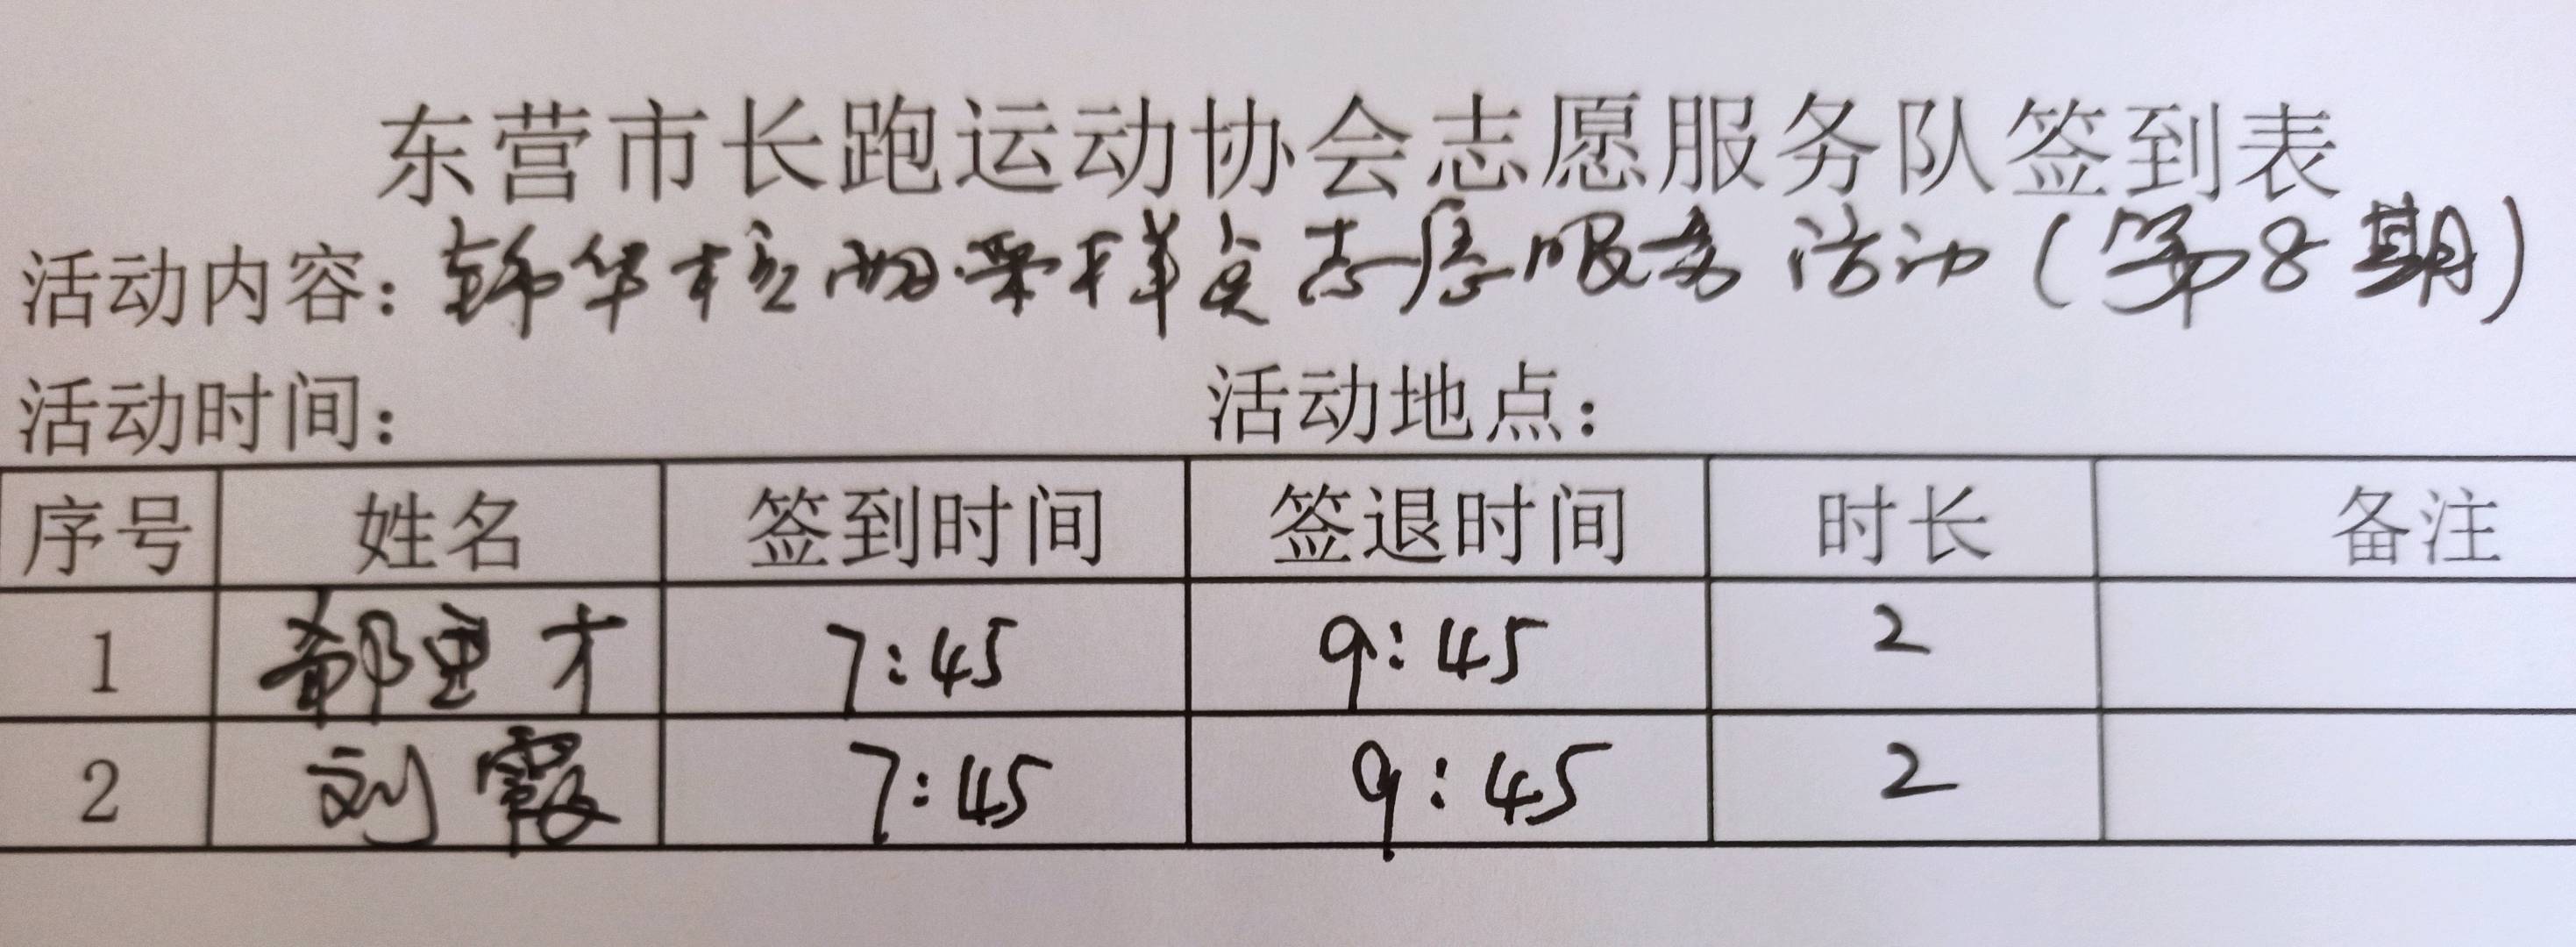 东营市长跑运动协会志愿服务队签到表
活动内容：锦华核酸采样点志愿服务活动（第8期）
活动时间： 活动地点：
序号 姓名 签到时间 签退时间 时长 备注
1 才 7:45 9:45 2
2 刘霞 7:45 9:45 2